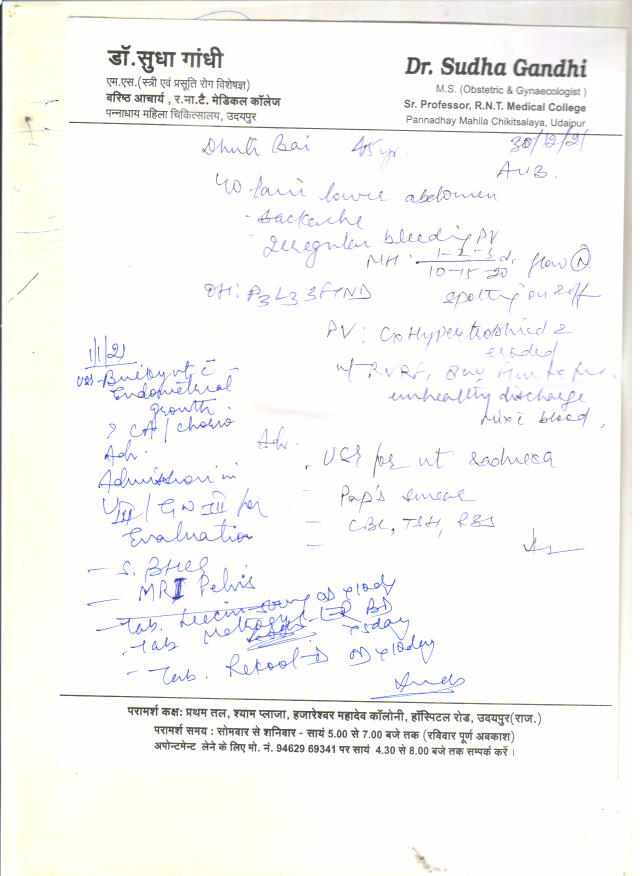 डॉ.सुधा गांधी
एम.एस.(स्त्री एवं प्रसूति रोग विशेषज्ञ)
वरिष्ठ आचार्य , र.ना.टै. मेडिकल कॉलेज
पन्नाधाय महिला चिकित्सालय, उदयपुर
Dr. Sudha Gandhi
M.S. (Obstetric & Gynaecologist )
Sr. Professor, R.N.T. Medical College
Pannadhay Mahila Chikitsalaya, Udaipur
Bai 45 yr. 30/12/21
AUB.
Pain lower abdomen
- Backache
Irregular bleeding PV
MH: 1-2-3 d. flow N
10-15-20
OH: P3L3 3FTND spotting on & off
PV: Cx Hypertrophied &
eroded
unhealthy discharge
mix c blood,
Adv.
USG for ut
- Pap's smear
- CBC, TSH, RBS
1/1/21
USG- Bulky ut c
Endometrial
growth
? CA/
Adv.
Admission in
III / III for
Evaluation
- S. BHCG
- MRI Pelvis
Tab. OD x 10 day
Tab. BD
x 5 day
- Tab. OD x 10 day
परामर्श कक्ष: प्रथम तल, श्याम प्लाजा, हजारेश्वर महादेव कॉलोनी, हॉस्पिटल रोड, उदयपुर(राज.)
परामर्श समय : सोमवार से शनिवार - सायं 5.00 से 7.00 बजे तक (रविवार पूर्ण अवकाश)
अपोन्टमेन्ट लेने के लिए मो. नं. 94629 69341 पर सायं 4.30 से 8.00 बजे तक सम्पर्क करें ।